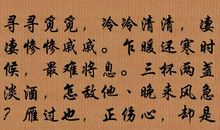 寻寻觅觅，冷冷清清，凄
凄惨惨戚戚。乍暖还寒时
候，最难将息。三杯两盏
淡酒，怎敌他、晚来风急
？雁过也，正伤心，却是